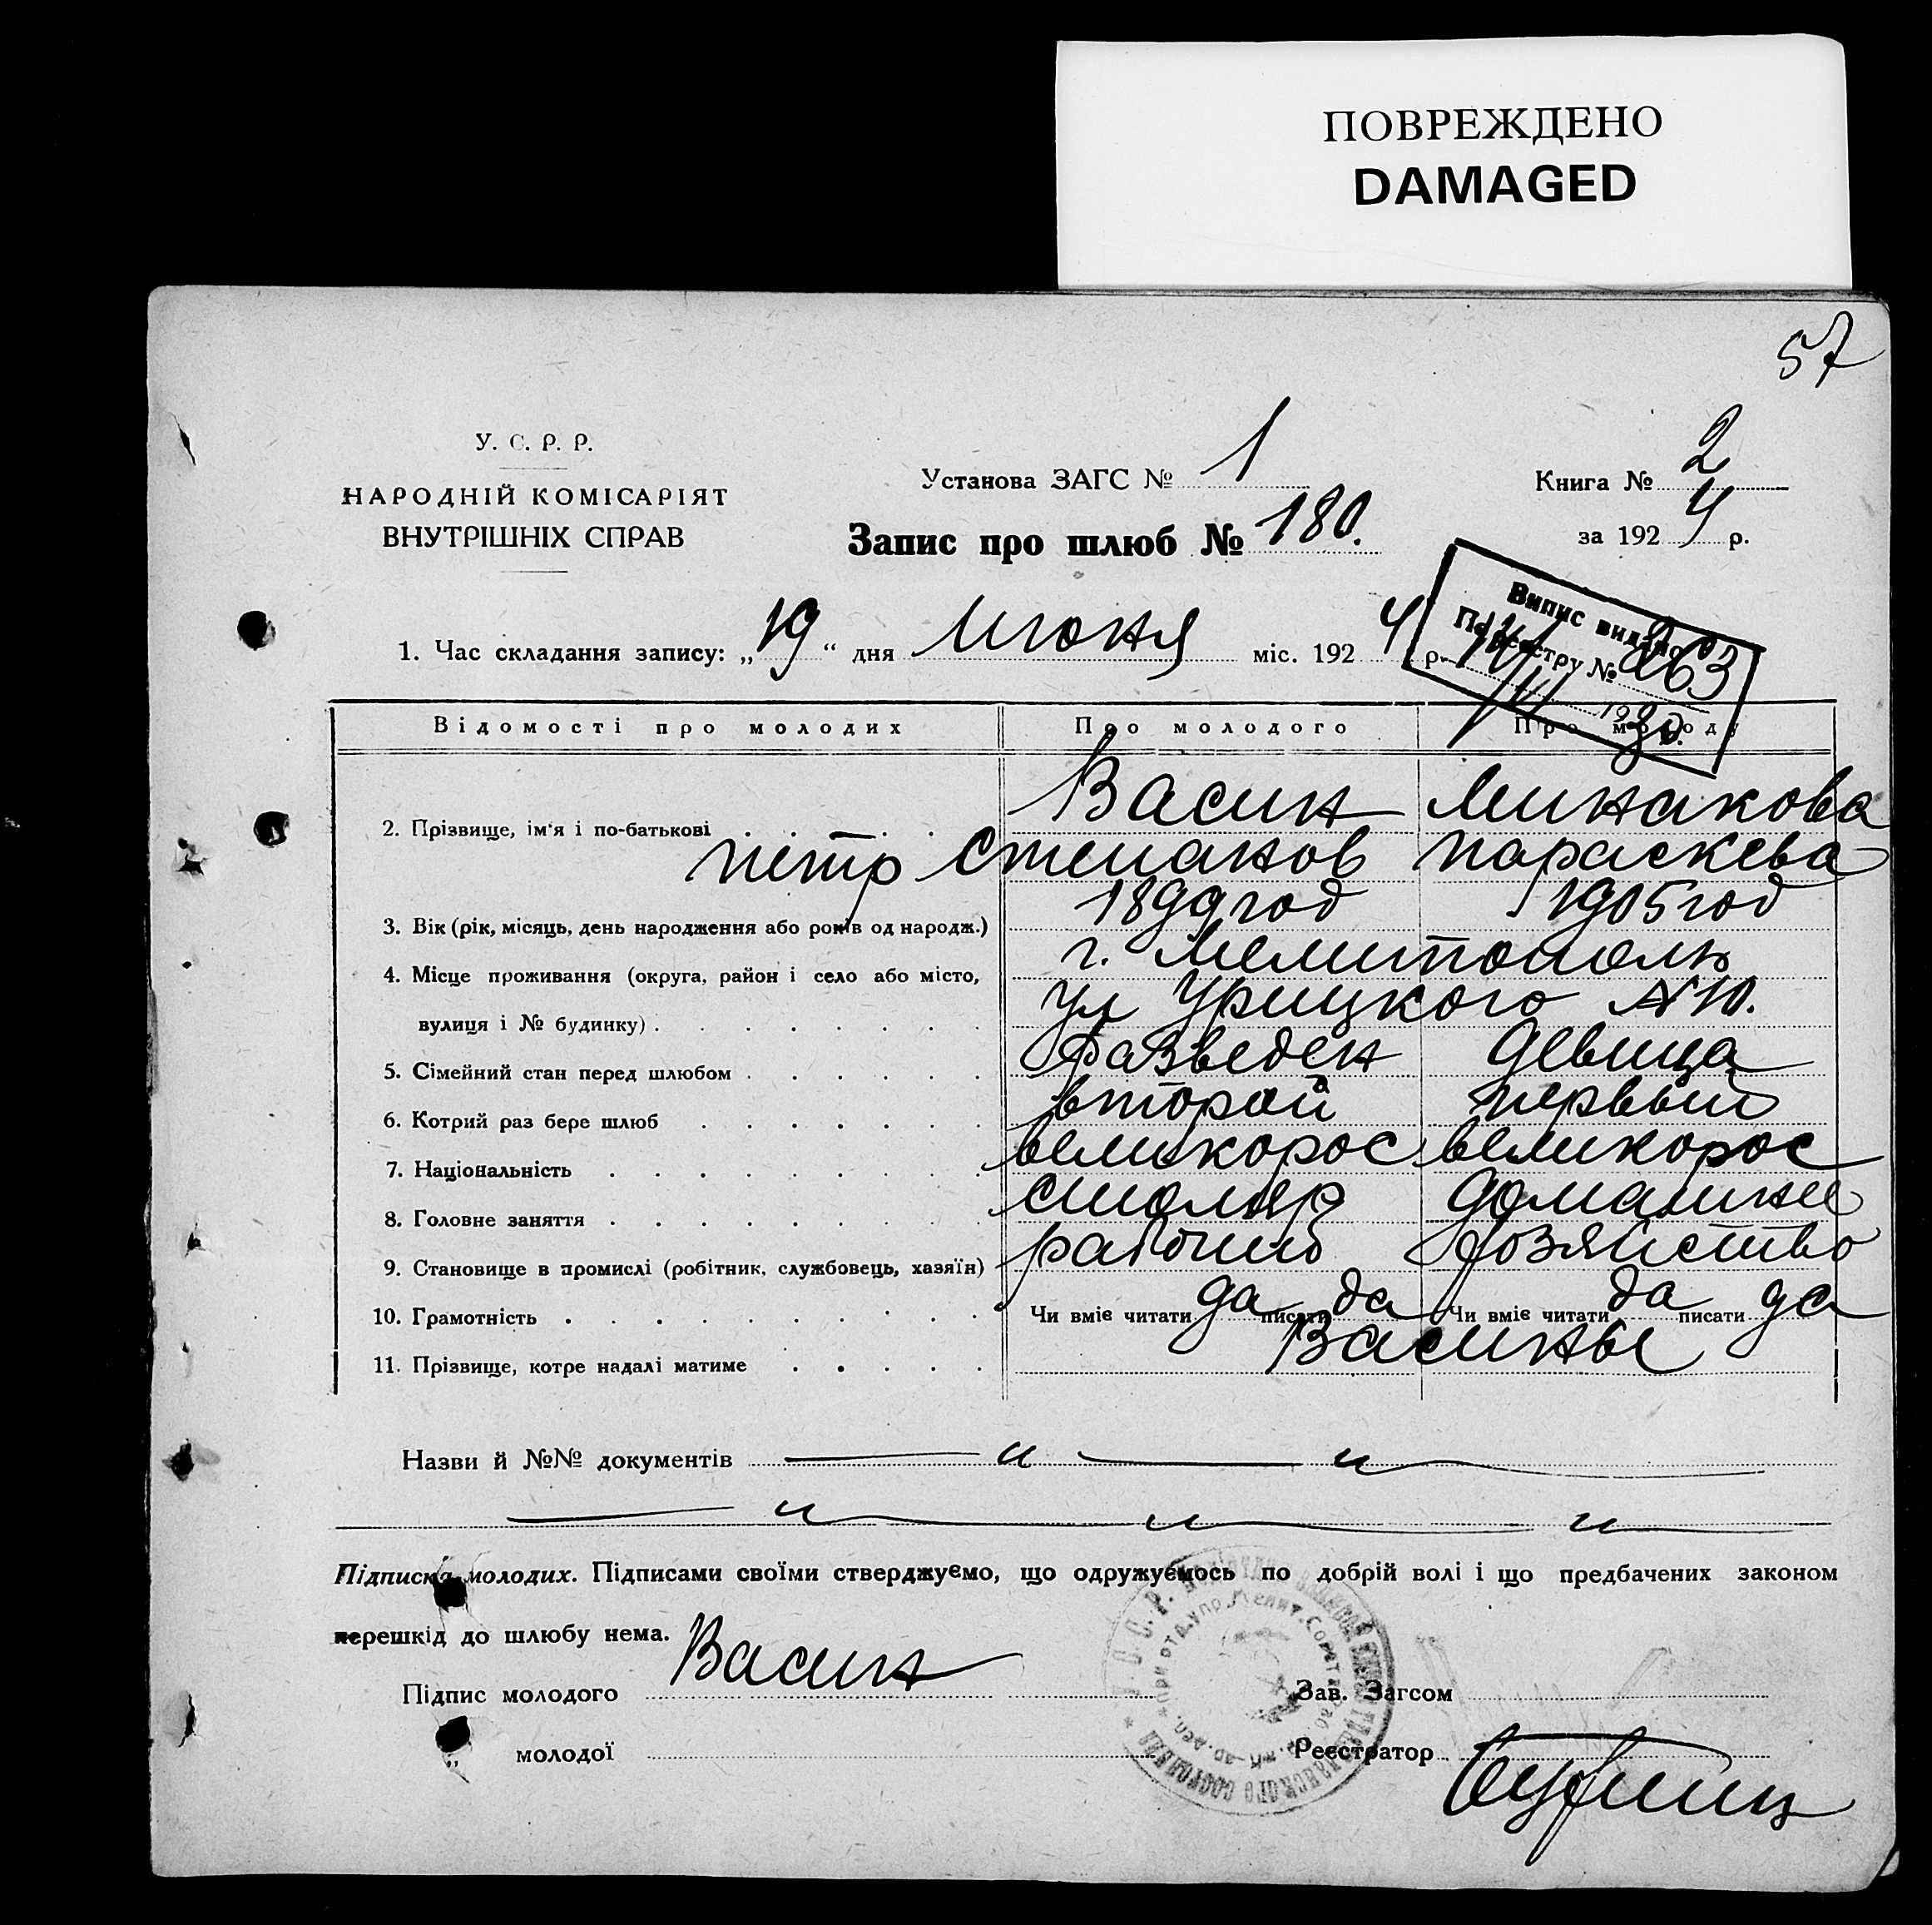 ПОВРЕЖДЕНО
DAMAGED
57
У. С. Р. Р.
НАРОДНІЙ КОМІСАРІЯТ
ВНУТРІШНІХ СПРАВ
Установа ЗАГС № 1
Книга № 2
за 1924 р.
Запис про шлюб № 180.
Випис видано
По реєстру № 263
1930
1. Час складання запису: „19“ дня Июня міс. 1924 р.
Відомості про молодих Про молодого Про молоду
Васин Минакова
2. Прізвище, ім'я і по-батькові
петр Степанов параскева
1899 год 1905 год
3. Вік (рік, місяць, день народження або років од народж.)
г. Мелитополь
4. Місце проживання (округа, район і село або місто,
ул Урицкого № 10.
вулиця і № будинку)
5. Сімейний стан перед шлюбом разведен девица
6. Котрий раз бере шлюб второй первый
7. Національність великорос великорос
8. Головне заняття столяр домашнее
9. Становище в промислі (робітник, службовець, хазяїн) рабочий хозяйство
10. Грамотність Чи вміє читати да писати да Чи вміє читати да писати да
11. Прізвище, котре надалі матиме Васины
Назви й №№ документів — „ — „
— „ — „ — „
Підписка молодих. Підписами своїми стверджуємо, що одружуємось по добрій волі і що предбачених законом
перешкід до шлюбу нема.
Підпис молодого Васин Зав. Загсом
„ молодої Реєстратор